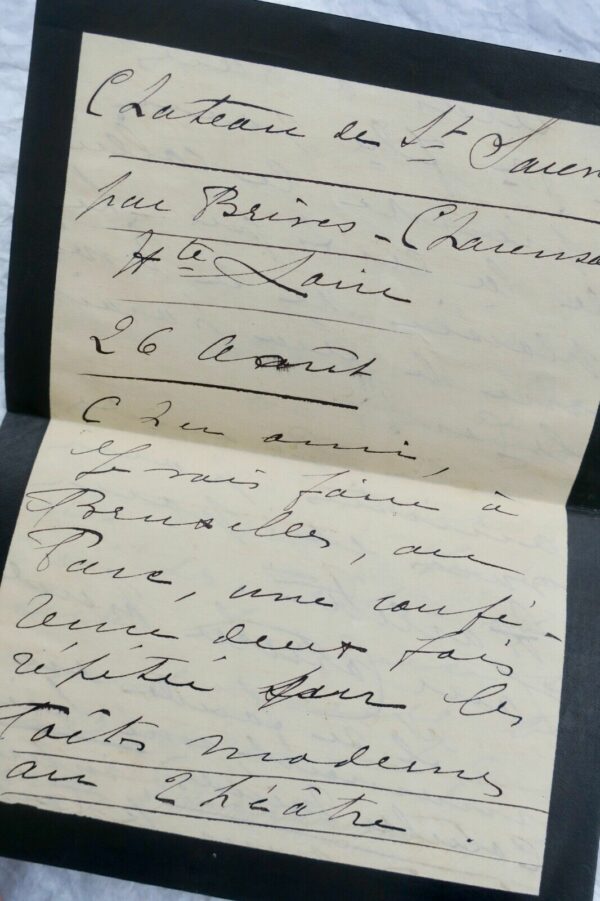 Chateau de St
par Brives-Charensa
Hte Loire
26 Août
Cher ami,
Je vais faire à
Bruxelles, au
Parc, une confé-
rence deux fois
répétée sur les
Poëtes modernes
au Théâtre.